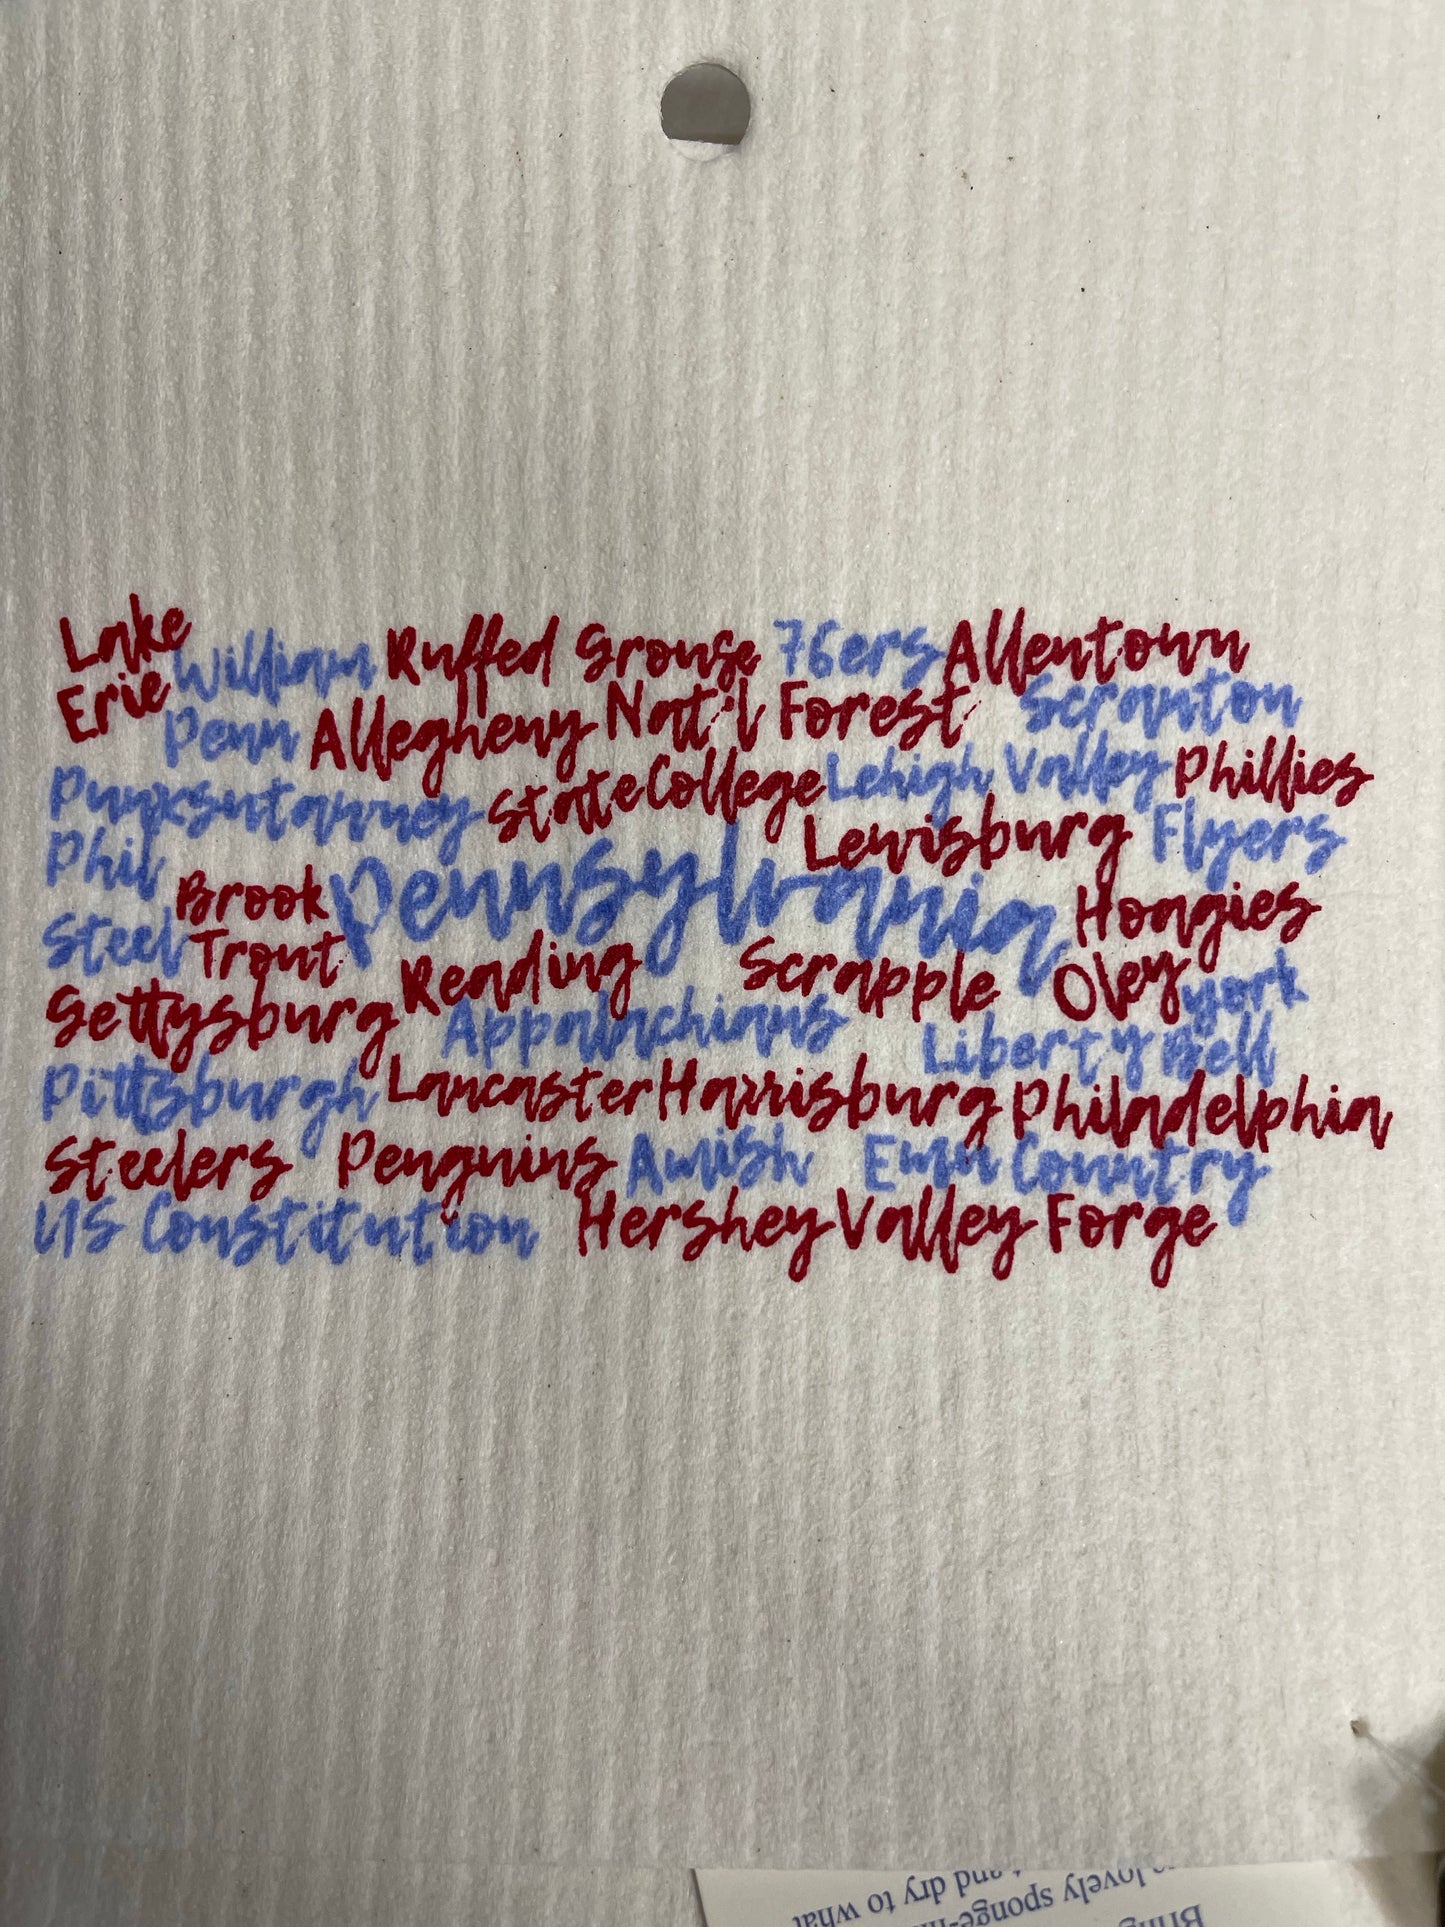 Lake
Erie
William
Penn
Ruffed Grouse
76ers
Allentown
Allegheny Nat'l Forest
Scranton
Punxsutawney
Phil
State College
Lehigh Valley
Phillies
Lewisburg
Flyers
Steel
Brook
Trout
Pennsylvania
Hoagies
Gettysburg
Reading
Scrapple
Oley
York
Appalachians
Liberty Bell
Pittsburgh
Lancaster
Harrisburg
Philadelphia
Steelers
Penguins
Amish
Emu Country
US Constitution
Hershey
Valley Forge
lovely sponge-
and dry to what